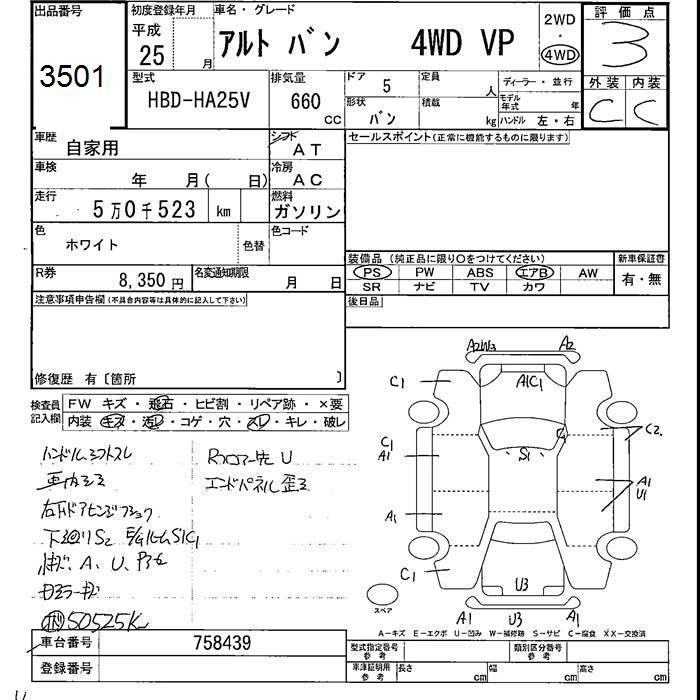 出品番号
3501
初度登録年月
平成
25 月
車名・グレード
アルト バン 4WD VP
2WD
・
4WD
評価点
3
外装 内装
C C
型式
HBD-HA25V
排気量
660
cc
ドア
5
形状
バン
定員
人
積載
kg
ディーラー・並行
モデル年式 年
ハンドル 左・右
車歴
自家用
シフト
AT
車検
年 月( 日)
冷房
AC
走行
5万0千523 km
燃料
ガソリン
色
ホワイト
色替
色コード
R券
8,350円
名変通知期限
月 日
セールスポイント(正常に機能するものに限ります)
装備品 (純正品に限り○をつけてください)
PS PW ABS エアB AW
SR ナビ TV カワ
新車保証書
有・無
後日品
注意事項申告欄(不具合内容等は具体的に記入して下さい)
修復歴 有〔箇所 〕
検査員
記入欄
FW キズ・飛石・ヒビ割・リペア跡・×要
内装 キズ・汚レ・コゲ・穴・スレ・キレ・破レ
ハンドルシフトスレ
車内ヨゴレ
右F ドアヒンジ
下廻りS2 S1C1
A、U、
50525K
Rフロアー先U
エンドパネル歪ミ
A2W3 A2
C1 A1C1
C1
A1
S1
C2
A1
U1
A1
C1
U3
A1 U3 A1
スペア
A−キズ E−エクボ U−凹み W−補修跡 S−サビ C−腐食 XX−交換済
車台番号
758439
登録番号
型式指定番号
参考
類別区分番号
参考
車庫証明用
参考
長さ cm 幅 cm 高さ cm